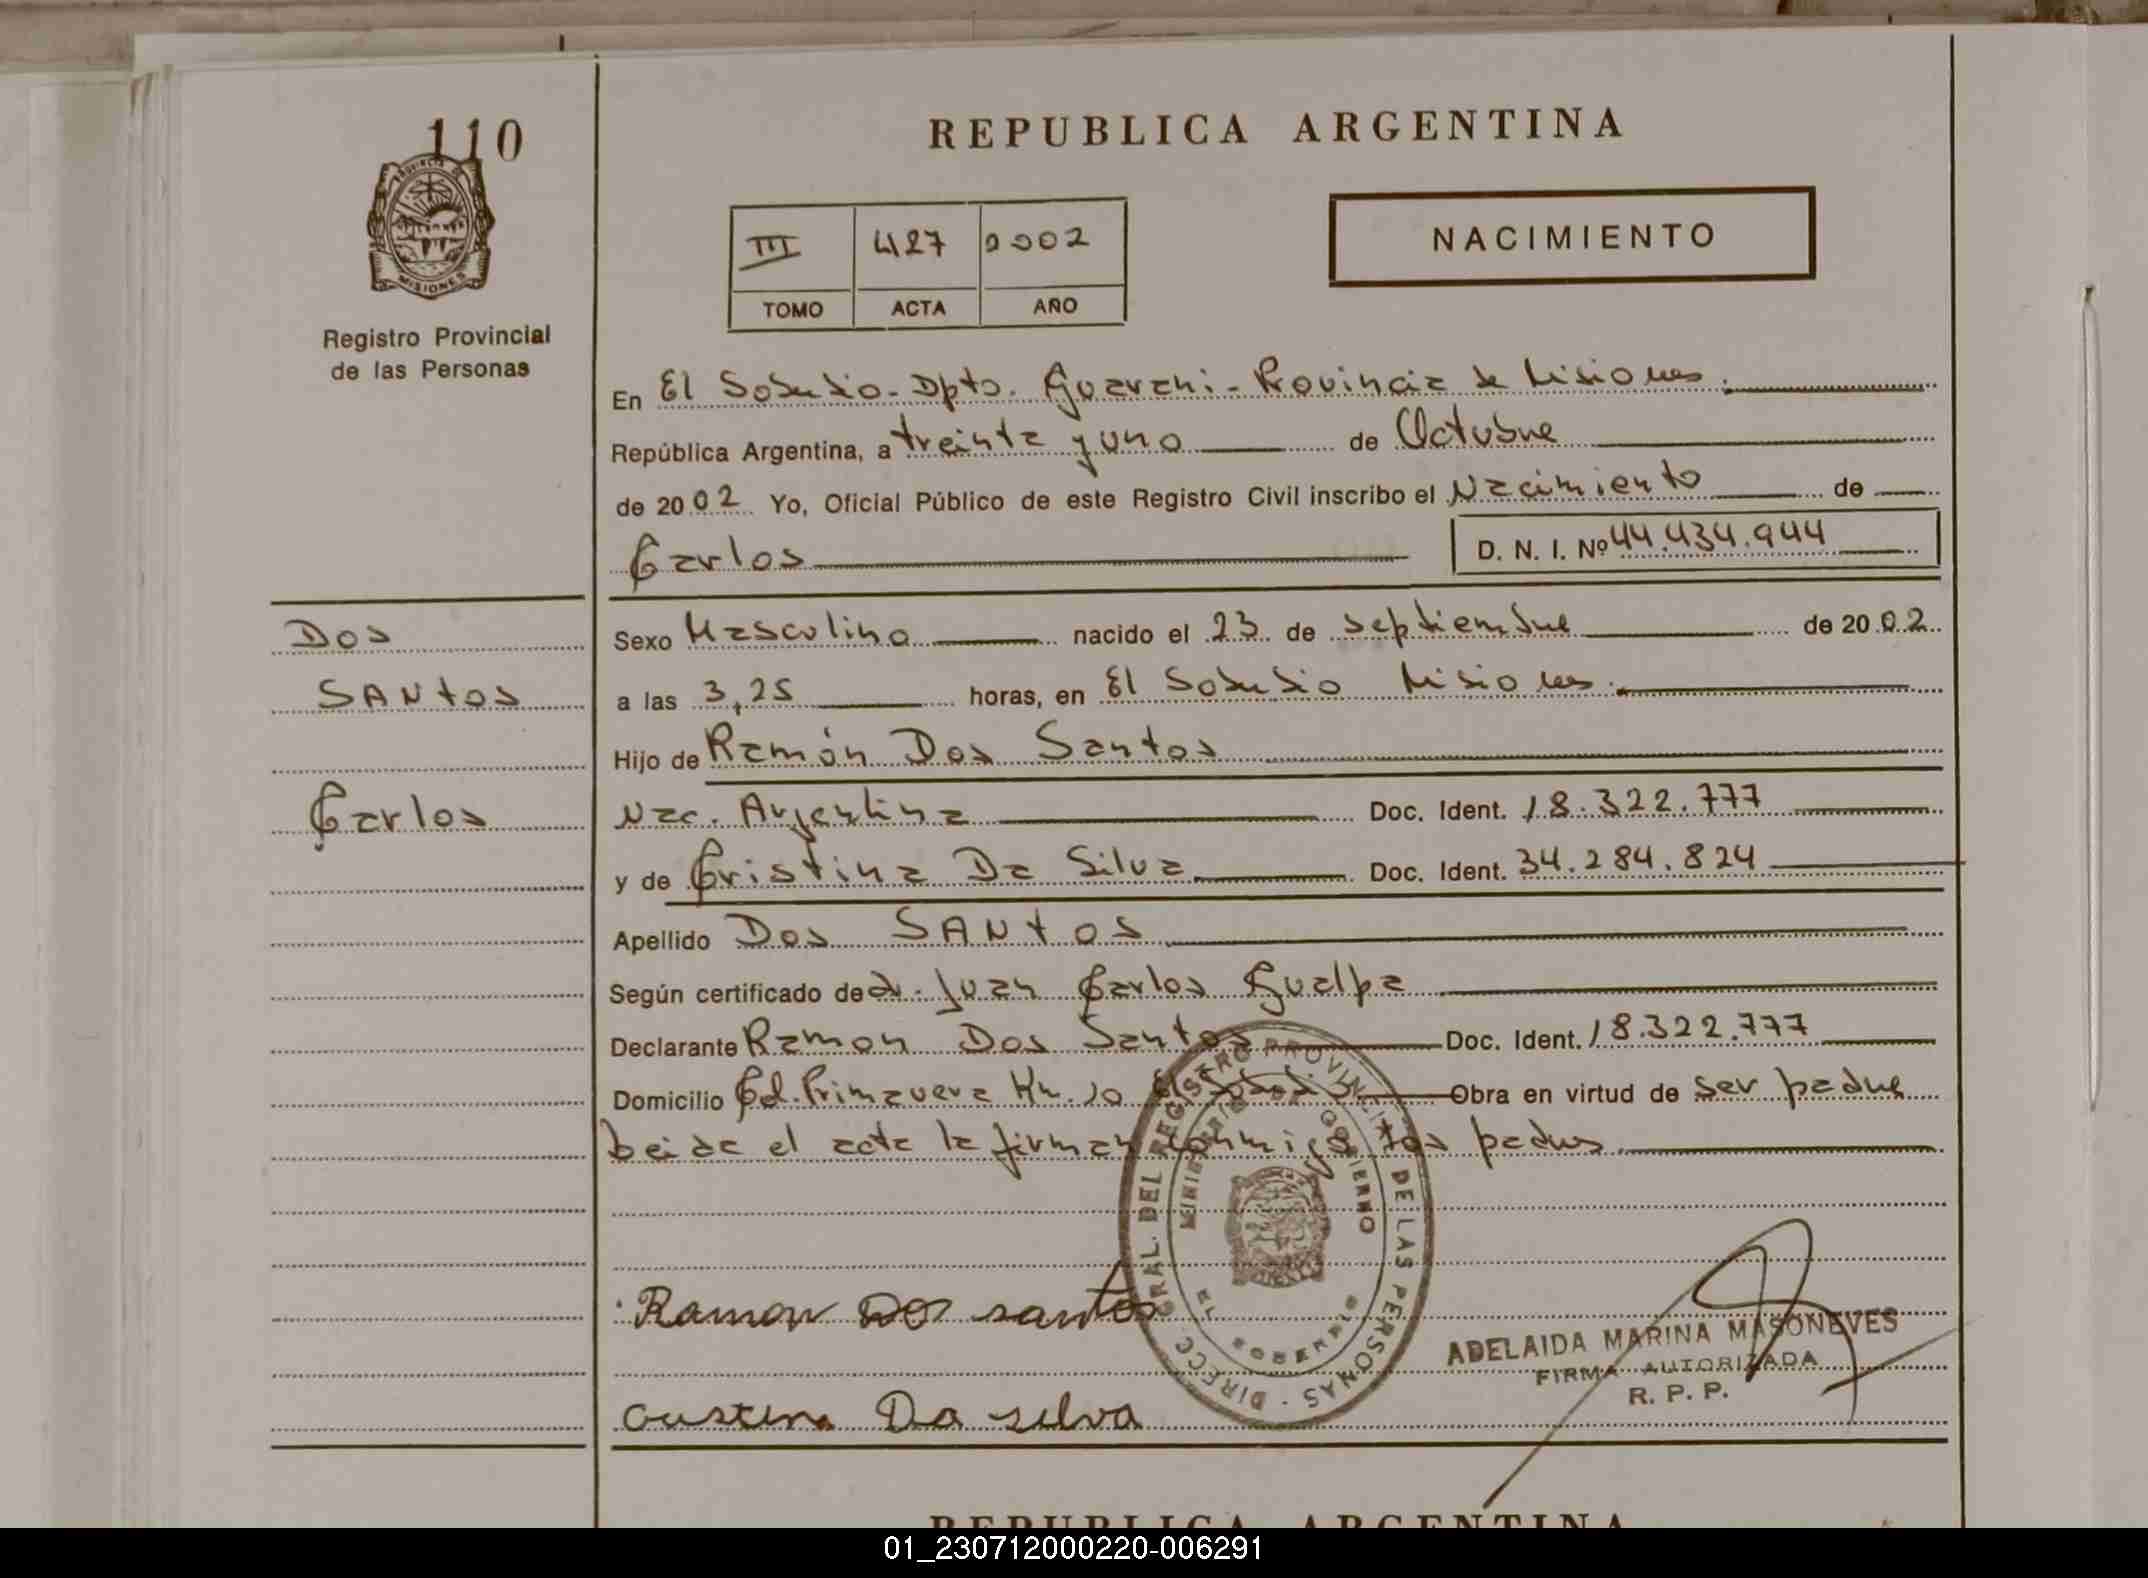 110
PROVINCIA DE
MISIONES
Registro Provincial
de las Personas
REPUBLICA ARGENTINA
III 427 2002
TOMO ACTA AÑO
NACIMIENTO
En El Soberbio - Dpto. Guarani - Provincia de Misiones.
República Argentina, a treinta y uno de Octubre
de 2002 Yo, Oficial Público de este Registro Civil inscribo el Nacimiento de
Carlos D. N. I. Nº 44.434.944
Dos
Santos
Carlos
Sexo Masculino nacido el 23 de Septiembre de 2002
a las 3,25 horas, en El Soberbio Misiones.
Hijo de Ramón Dos Santos
Nac. Argentina Doc. Ident. 18.322.777
y de Cristina Da Silva Doc. Ident. 34.284.824
Apellido Dos SANtos
Según certificado de dr. Juan Carlos Gualpa
Declarante Ramon Dos Santos Doc. Ident. 18.322.777
Domicilio Col. Primavera Km. 10 El Soberbio Obra en virtud de ser padre
Leida el acta la firman conmigo los padres.
DIRECC. GRAL. DEL REGISTRO PROVINCIAL DE LAS PERSONAS
MINISTERIO DE GOBIERNO
EL SOBERBIO
Ramon Dos santos
ADELAIDA MARINA MASONEVES
FIRMA AUTORIZADA
R. P. P.
Cristina Da silva
REPUBLICA ARGENTINA
01_230712000220-006291